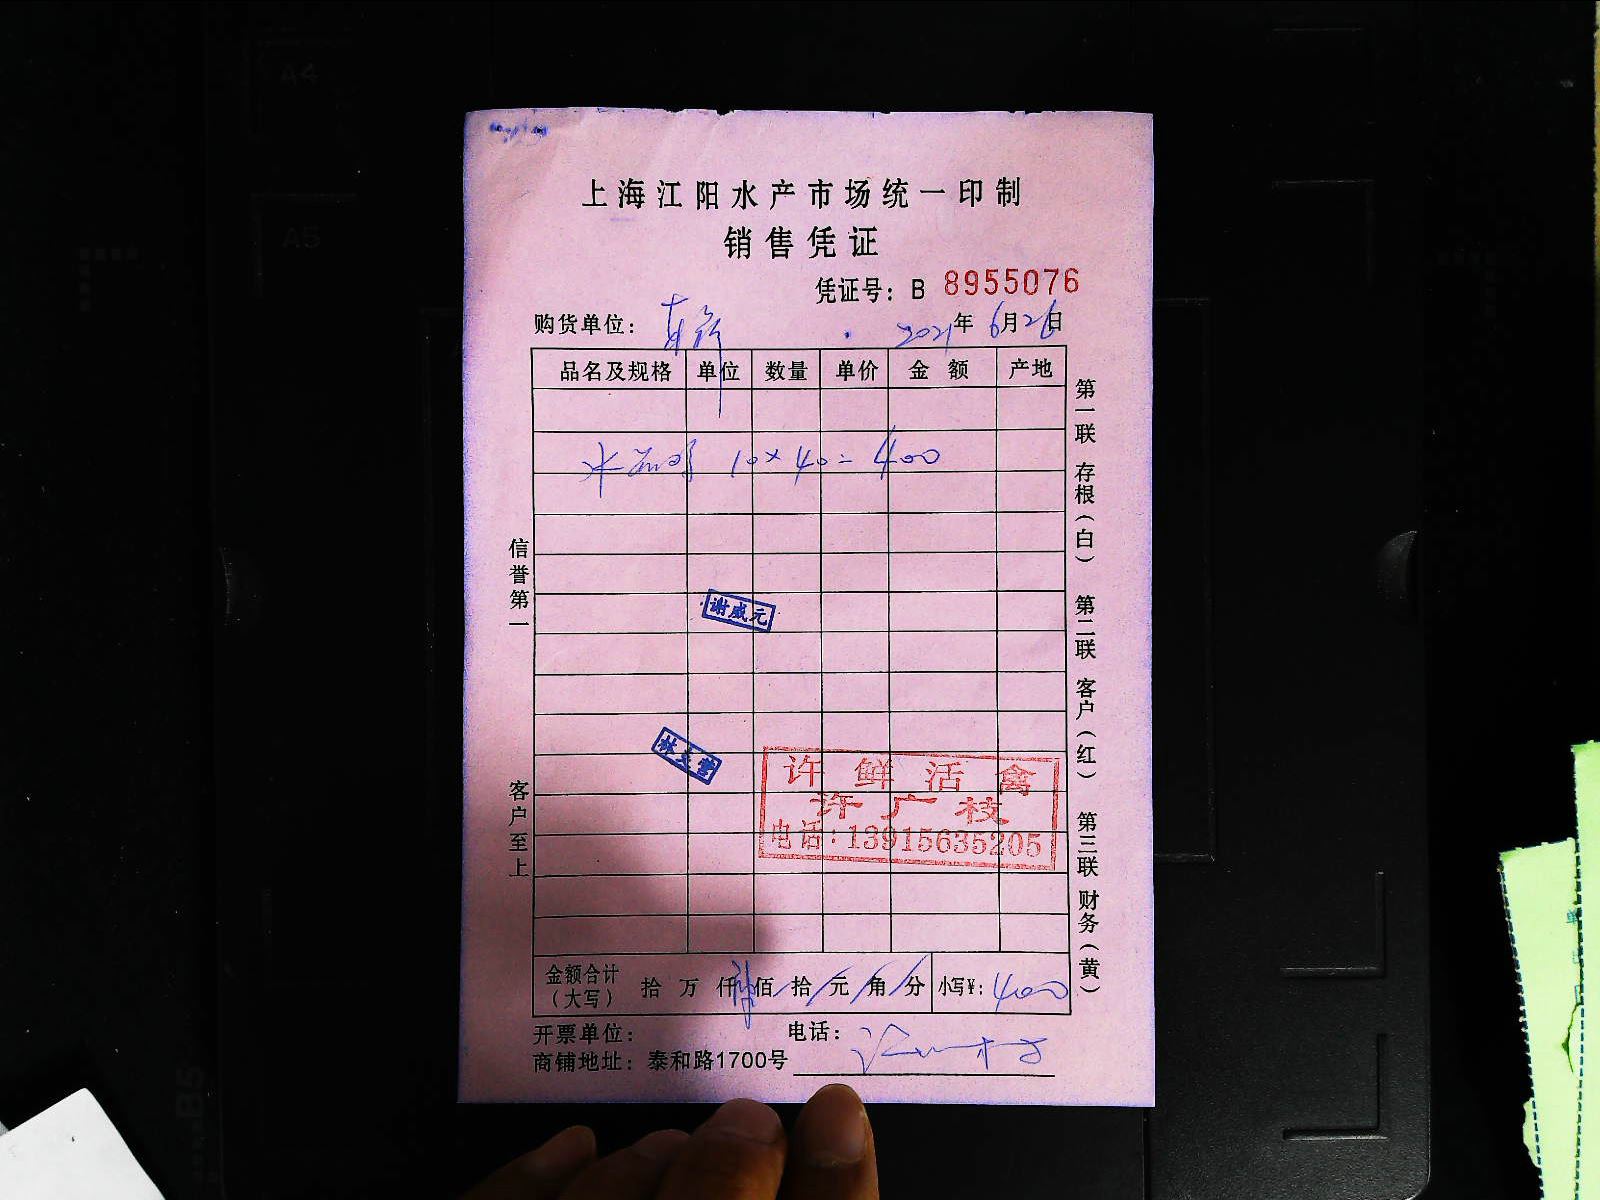 A4
A5
B5
上海江阳水产市场统一印制
销售凭证
凭证号: B 8955076
购货单位: 2021年6月26日
品名及规格 单位 数量 单价 金额 产地
水 10×40=400
谢成元
林天
许鲜活禽
许广枝
电话:13915635205
金额合计
(大写) 拾万仟肆佰拾元角分 小写¥: 400
开票单位: 电话:
商铺地址: 泰和路1700号
信誉第一
客户至上
第一联 存根(白) 第二联 客户(红) 第三联 财务(黄)